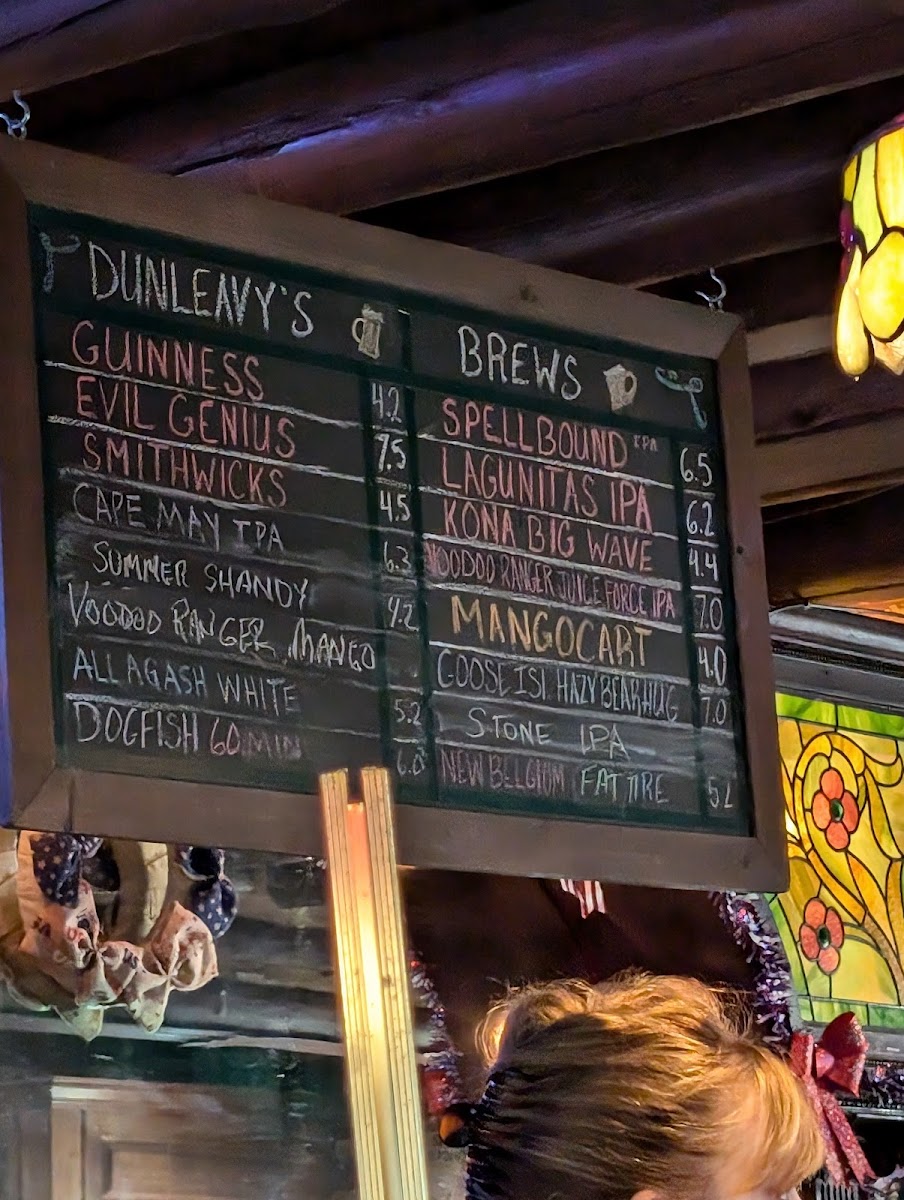 DUNLEAVY'S
GUINNESS 4.2
EVIL GENIUS 7.5
SMITHWICKS 4.5
CAPE MAY IPA 6.3
SUMMER SHANDY 4.2
VOODOO RANGER MANGO
ALLAGASH WHITE 5.2
DOGFISH 60 MIN 6.0
BREWS
SPELLBOUND IPA 6.5
LAGUNITAS IPA 6.2
KONA BIG WAVE 4.4
VOODOO RANGER JUICE FORCE IPA 7.0
MANGOCART 4.0
GOOSE ISL HAZY BEAR HUG 7.0
STONE IPA
NEW BELGIUM FAT TIRE